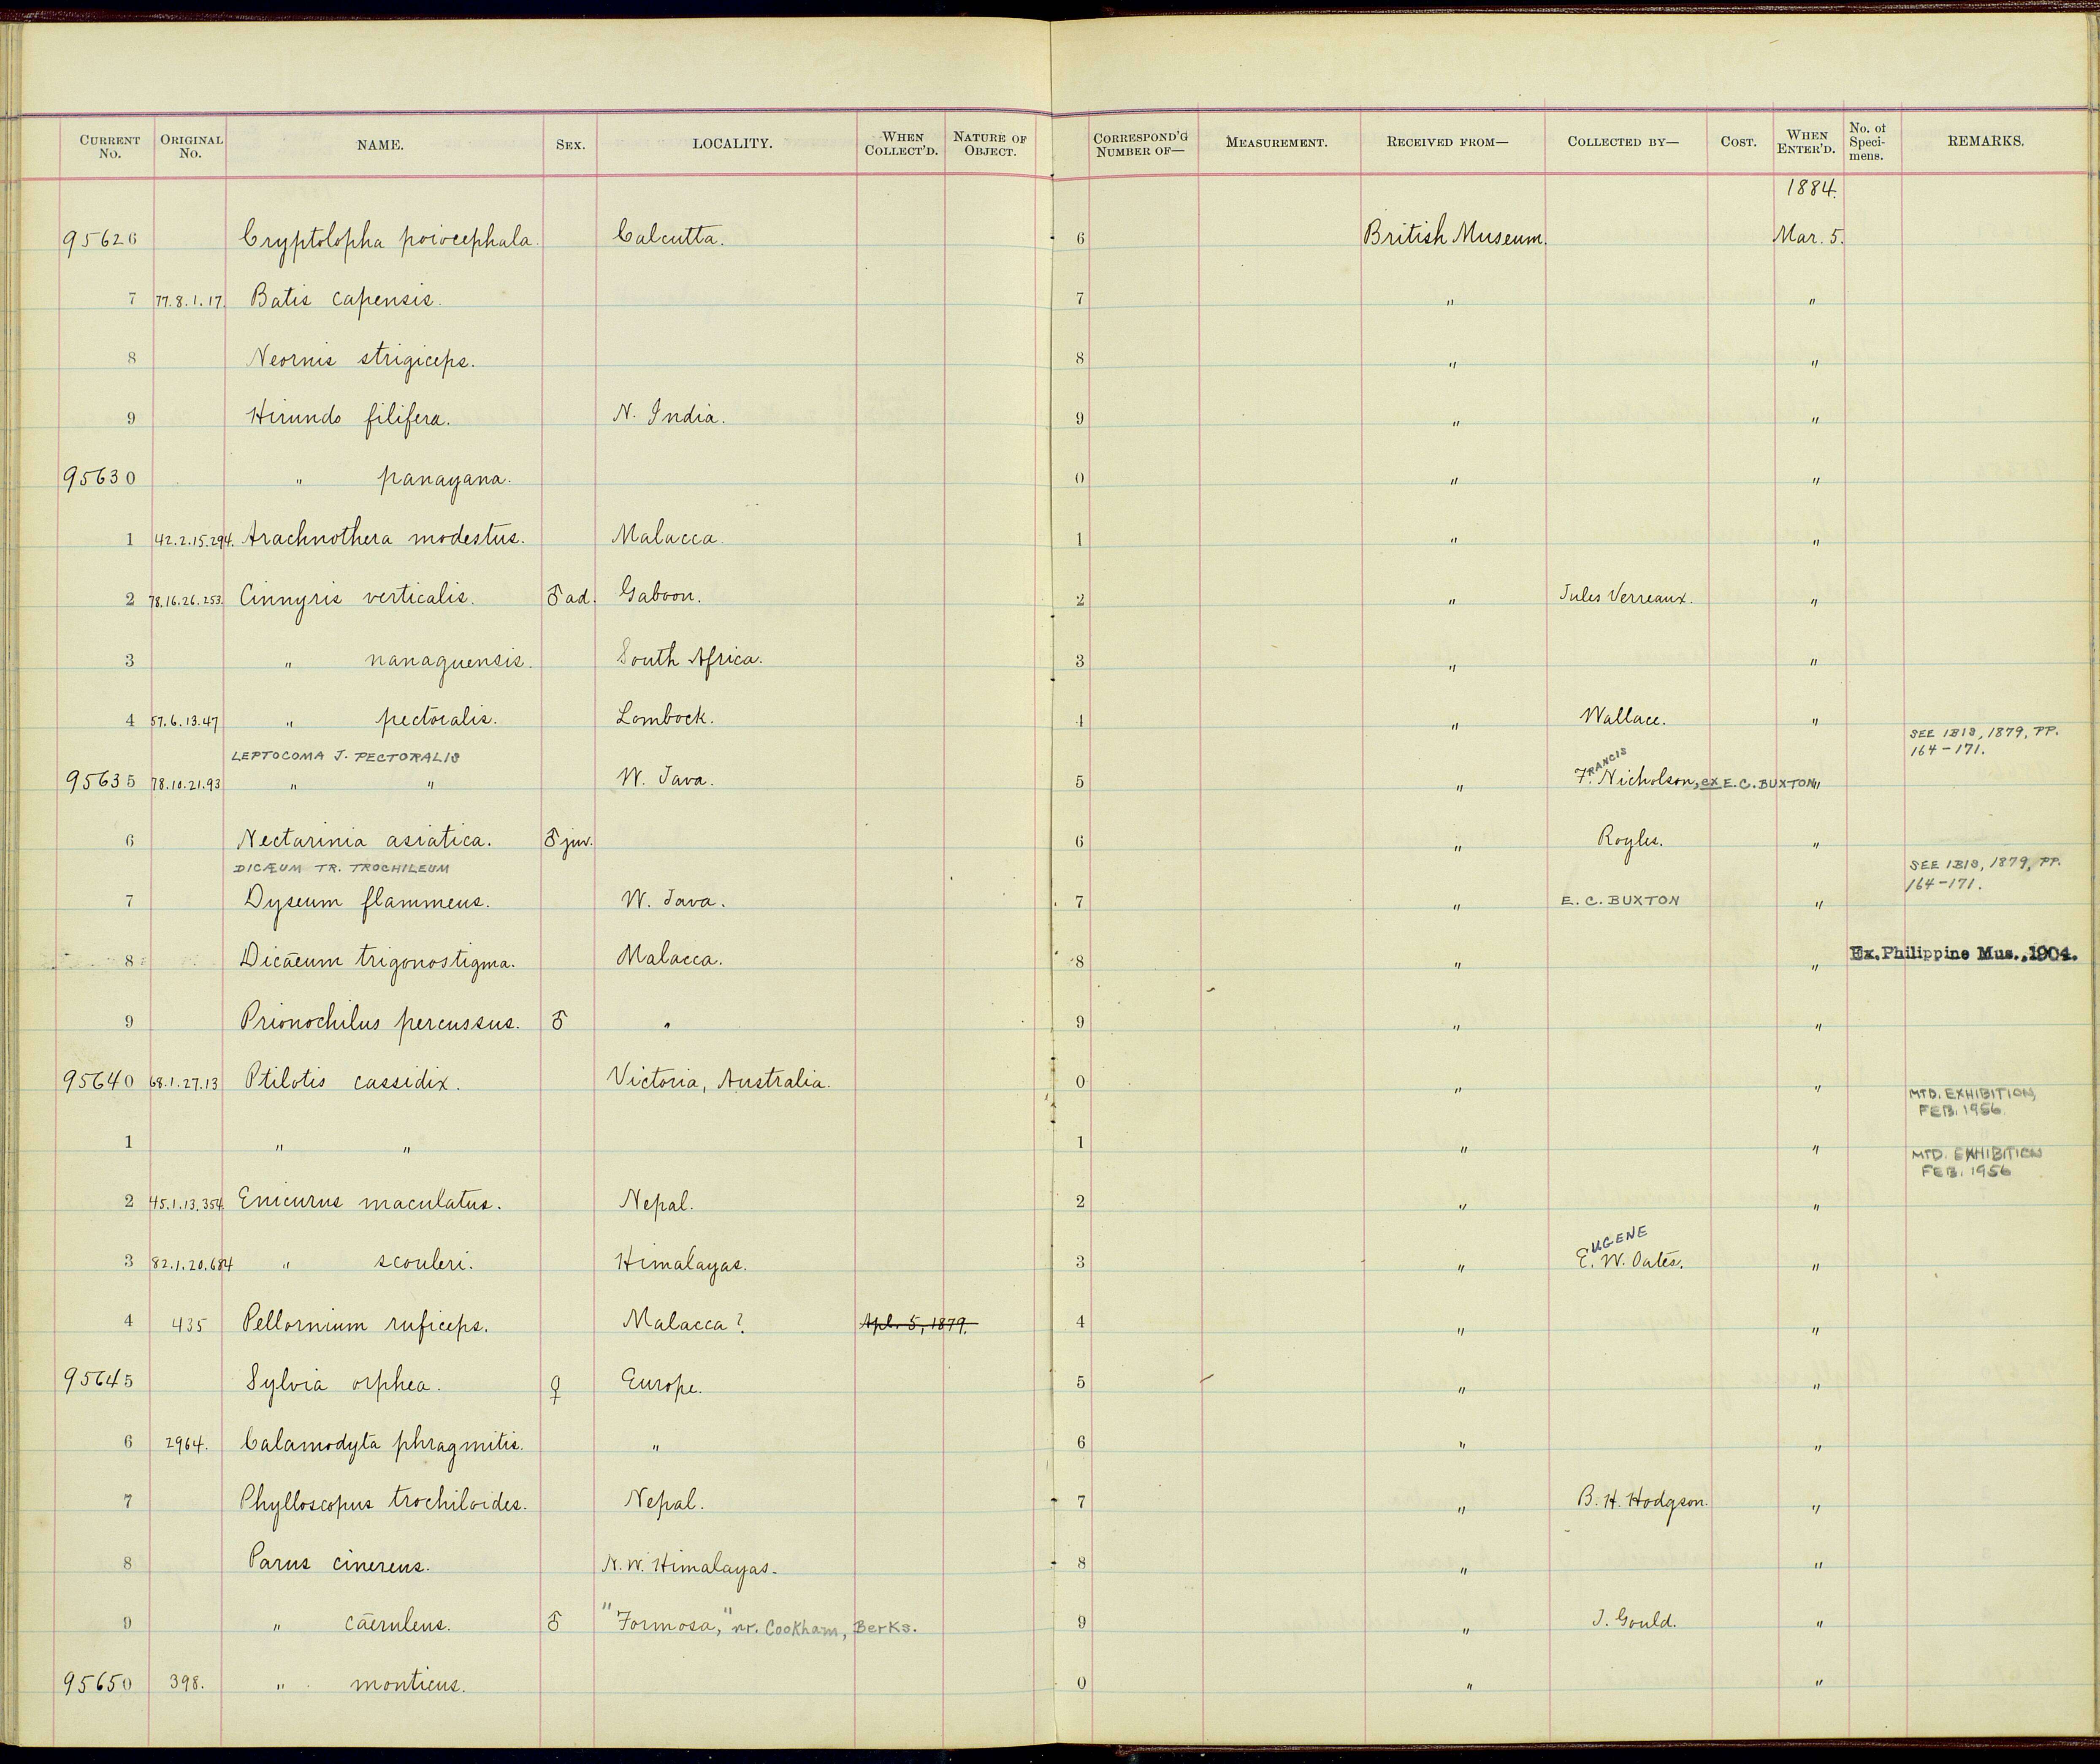 CURRENT No. ORIGINAL No. NAME. SEX. LOCALITY. WHEN COLLECT'D. NATURE OF OBJECT. CORRESPOND'G NUMBER OF— MEASUREMENT. RECEIVED FROM— COLLECTED BY— COST. WHEN ENTER'D. No. of Speci-mens. REMARKS.
1884.
95626 Cryptolopha poiocephala. Calcutta. 6 British Museum. Mar. 5.
7 77.8.1.17. Batis capensis. 7 " "
8 Neornis strigiceps. 8 " "
9 Hirundo filifera. N. India. 9 " "
95630 " panayana. 0 " "
1 42.2.15.294. Arachnothera modestus. Malacca. 1 " "
2 78.16.26.253. Cinnyris verticalis. ♂ ad. Gaboon. 2 " Jules Verreaux. "
3 " nanaquensis. South Africa. 3 " "
4 57.6.13.47 " pectoralis. Lombock. 4 " Wallace. "
LEPTOCOMA J. PECTORALIS SEE IBIS, 1879, PP. 164-171.
95635 78.10.21.93 " " W. Java. 5 " FRANCIS F. Nicholson, ex E. C. BUXTON "
6 Nectarinia asiatica. ♂ juv. 6 " Royles. "
DICÆUM TR. TROCHILEUM SEE IBIS, 1879, PP. 164-171.
7 Dyseum flammeus. W. Java. 7 " E. C. BUXTON "
8 Dicaeum trigonostigma. Malacca. 8 " " Ex. Philippine Mus., 1904.
9 Prionochilus percussus. ♂ " 9 " "
95640 68.1.27.13 Ptilotis cassidix. Victoria, Australia. 0 " " MTD. EXHIBITION, FEB. 1956
1 " " 1 " " MTD. EXHIBITION FEB. 1956
2 45.1.13.354. Enicurus maculatus. Nepal. 2 " "
3 82.1.20.684 " scouleri. Himalayas. 3 " EUGENE E. W. Oates. "
4 435 Pellornium ruficeps. Malacca? Apl. 5, 1879. 4 " "
95645 Sylvia orphea. ♀ Europe. 5 " "
6 2964. Calamodyta phragmitis. " 6 " "
7 Phylloscopus trochiloides. Nepal. 7 " B. H. Hodgson. "
8 Parus cinereus. N. W. Himalayas. 8 " "
9 " caeruleus. ♂ "Formosa," nr. Cookham, Berks. 9 " J. Gould. "
95650 398. " monticus. 0 " "